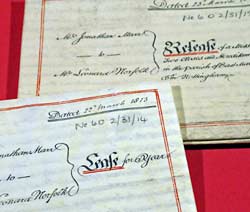 Dated 22nd March
No 60 2/31/14
Mr Jonathan Mare
to
Mr Leonard Norfolk
Release of a
Two Closes and
in the parish of
Nottingham
Dated 22nd March 1813
No 60 2/31/14
Jonathan Mare
to
Leonard Norfolk
Lease for 6 Years